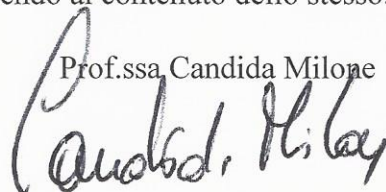 endo al contenuto dello stesso.
Prof.ssa Candida Milone
Candida Milone